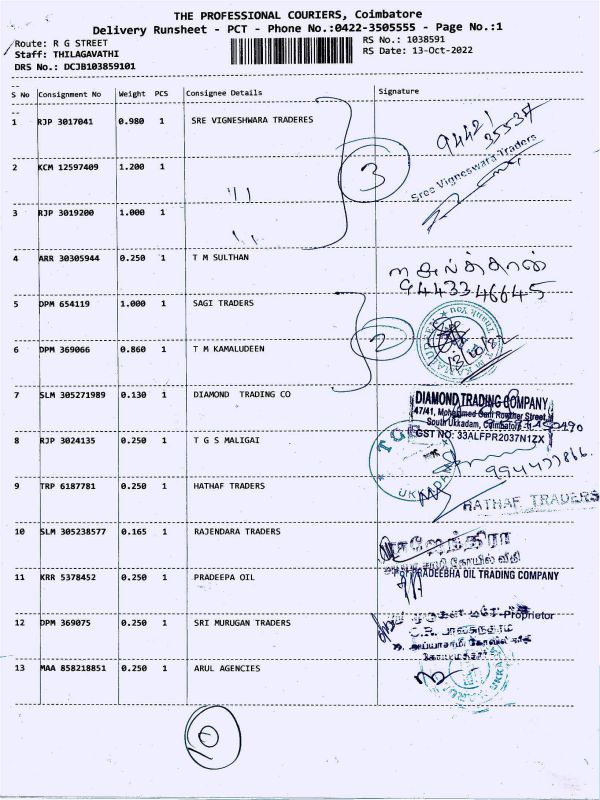 THE PROFESSIONAL COURIERS, Coimbatore
Delivery Runsheet - PCT - Phone No.:0422-3505555 - Page No.:1
Route: R G STREET
RS No.: 1038591
Staff: THILAGAVATHI
RS Date: 13-Oct-2022
DRS No.: DCJB103859101
S No Consignment No Weight PCS Consignee Details Signature
1 RJP 3017041 0.980 1 SRE VIGNESHWARA TRADERES
94421
35537
Sree Vigneswara Traders
2 KCM 12597409 1.200 1 11
3
3 RJP 3019200 1.000 1 11
4 ARR 30305944 0.250 1 T M SULTHAN
9443346645
5 DPM 654119 1.000 1 SAGI TRADERS
Thank You
2
6 DPM 369066 0.860 1 T M KAMALUDEEN
7 SLM 305271989 0.130 1 DIAMOND TRADING CO
DIAMOND TRADING COMPANY
47/41, Mohammed Gani Rowther Street
South Ukkadam, Coimbatore-1
GST NO: 33ALFPR2037N1ZX
8 RJP 3024135 0.250 1 T G S MALIGAI
T G S
UKKADAM
9 TRP 6187781 0.250 1 HATHAF TRADERS
HATHAF TRADERS
10 SLM 305238577 0.165 1 RAJENDARA TRADERS
ராஜேந்திரா
11 KRR 5378452 0.250 1 PRADEEPA OIL
PRADEEBHA OIL TRADING COMPANY
Proprietor
12 DPM 369075 0.250 1 SRI MURUGAN TRADERS
13 MAA 858218851 0.250 1 ARUL AGENCIES
UKKADAM
10